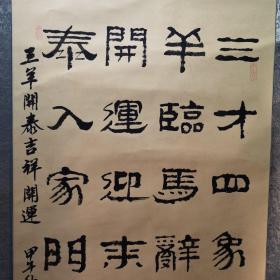 三才四象
羊臨馬辭
開運迎未
泰入家門
三羊開泰吉祥開運
甲午